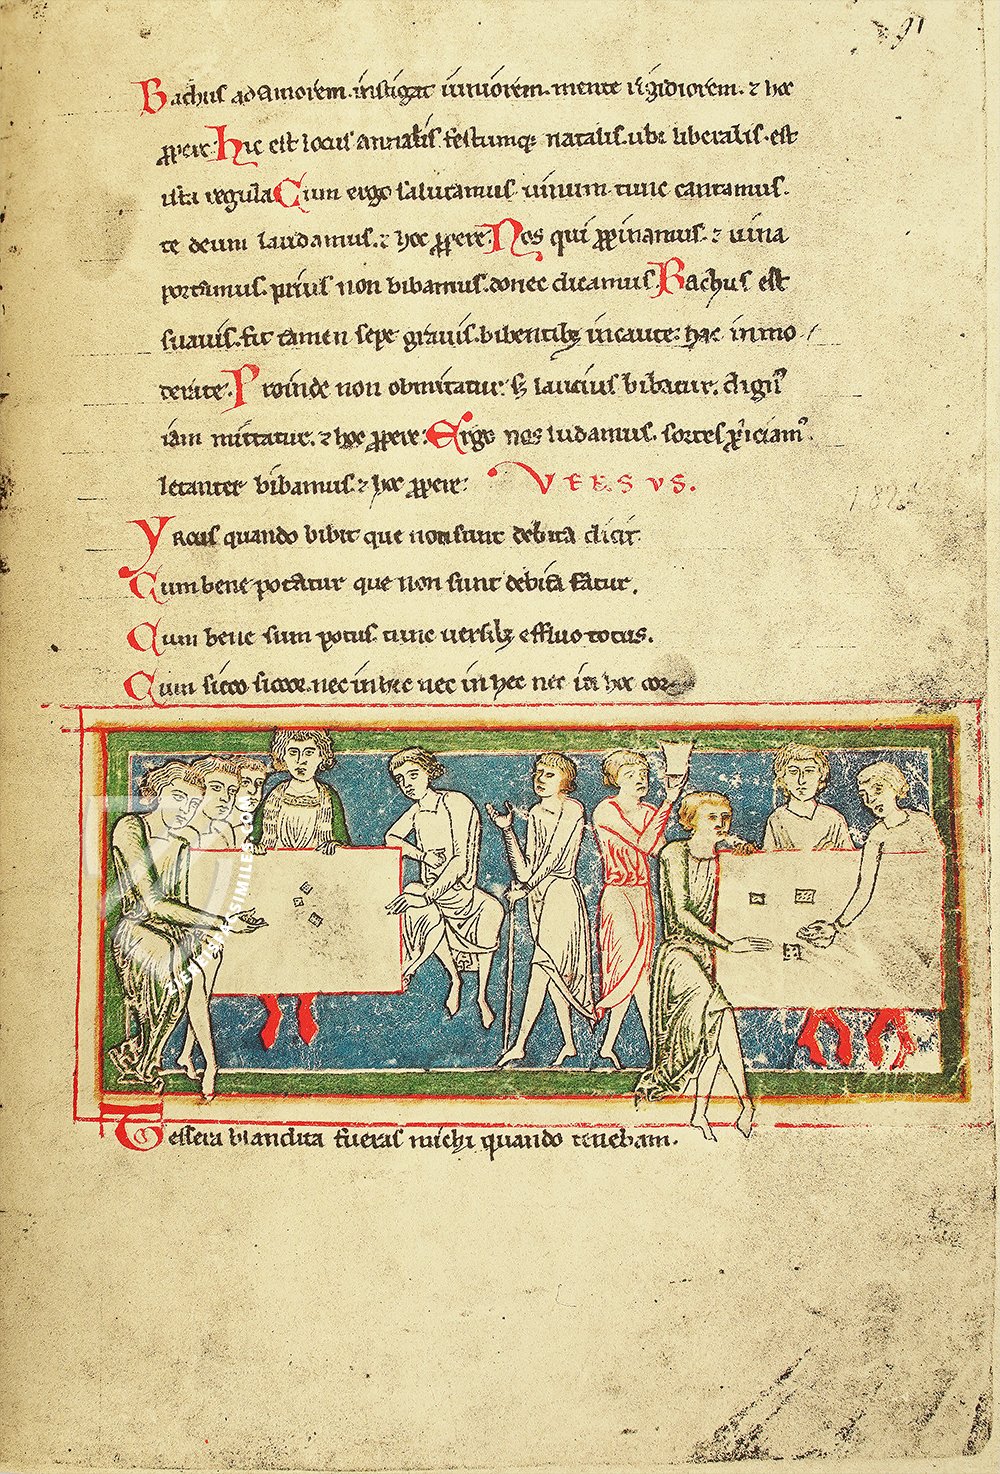 91
Bachus ad amorem. instigat iuniorem. mente rigidiorem. ⁊ hoc
ꝓpere. Hic est locus annalis. festumqꝫ natalis. ubi liberalis. est
ista regula. Cum ergo salutamus. uinum tunc cantamus.
te deum laudamus. ⁊ hoc ꝓpere. Nos qui ꝓpinamus. ⁊ uina
portamus. prius non bibamus. donec dicamus. Bachus est
suauis. fit tamen sepe grauis. bibentibꝫ incaute. hac inmo
derate. Proinde non obmittatur. sꝫ laucius bibatur. dignum
iam mittatur. ⁊ hoc ꝓpere. Ergo nos ludamus. sortes ꝓiciamꝰ.
letanter bibamus. ⁊ hoc ꝓpere. VERSUS.
Yrcus quando bibit que non sunt debita dicit.
Cum bene potatur que non sunt debita fatur.
Cum bene sum potus tunc uersibꝫ effluo totus.
Cum sicco siccor. nec in hic nec in hec nec in hoc cor
Tessera blandita fueras michi quando tenebam.
ZIEREIS FACSIMILES.COM